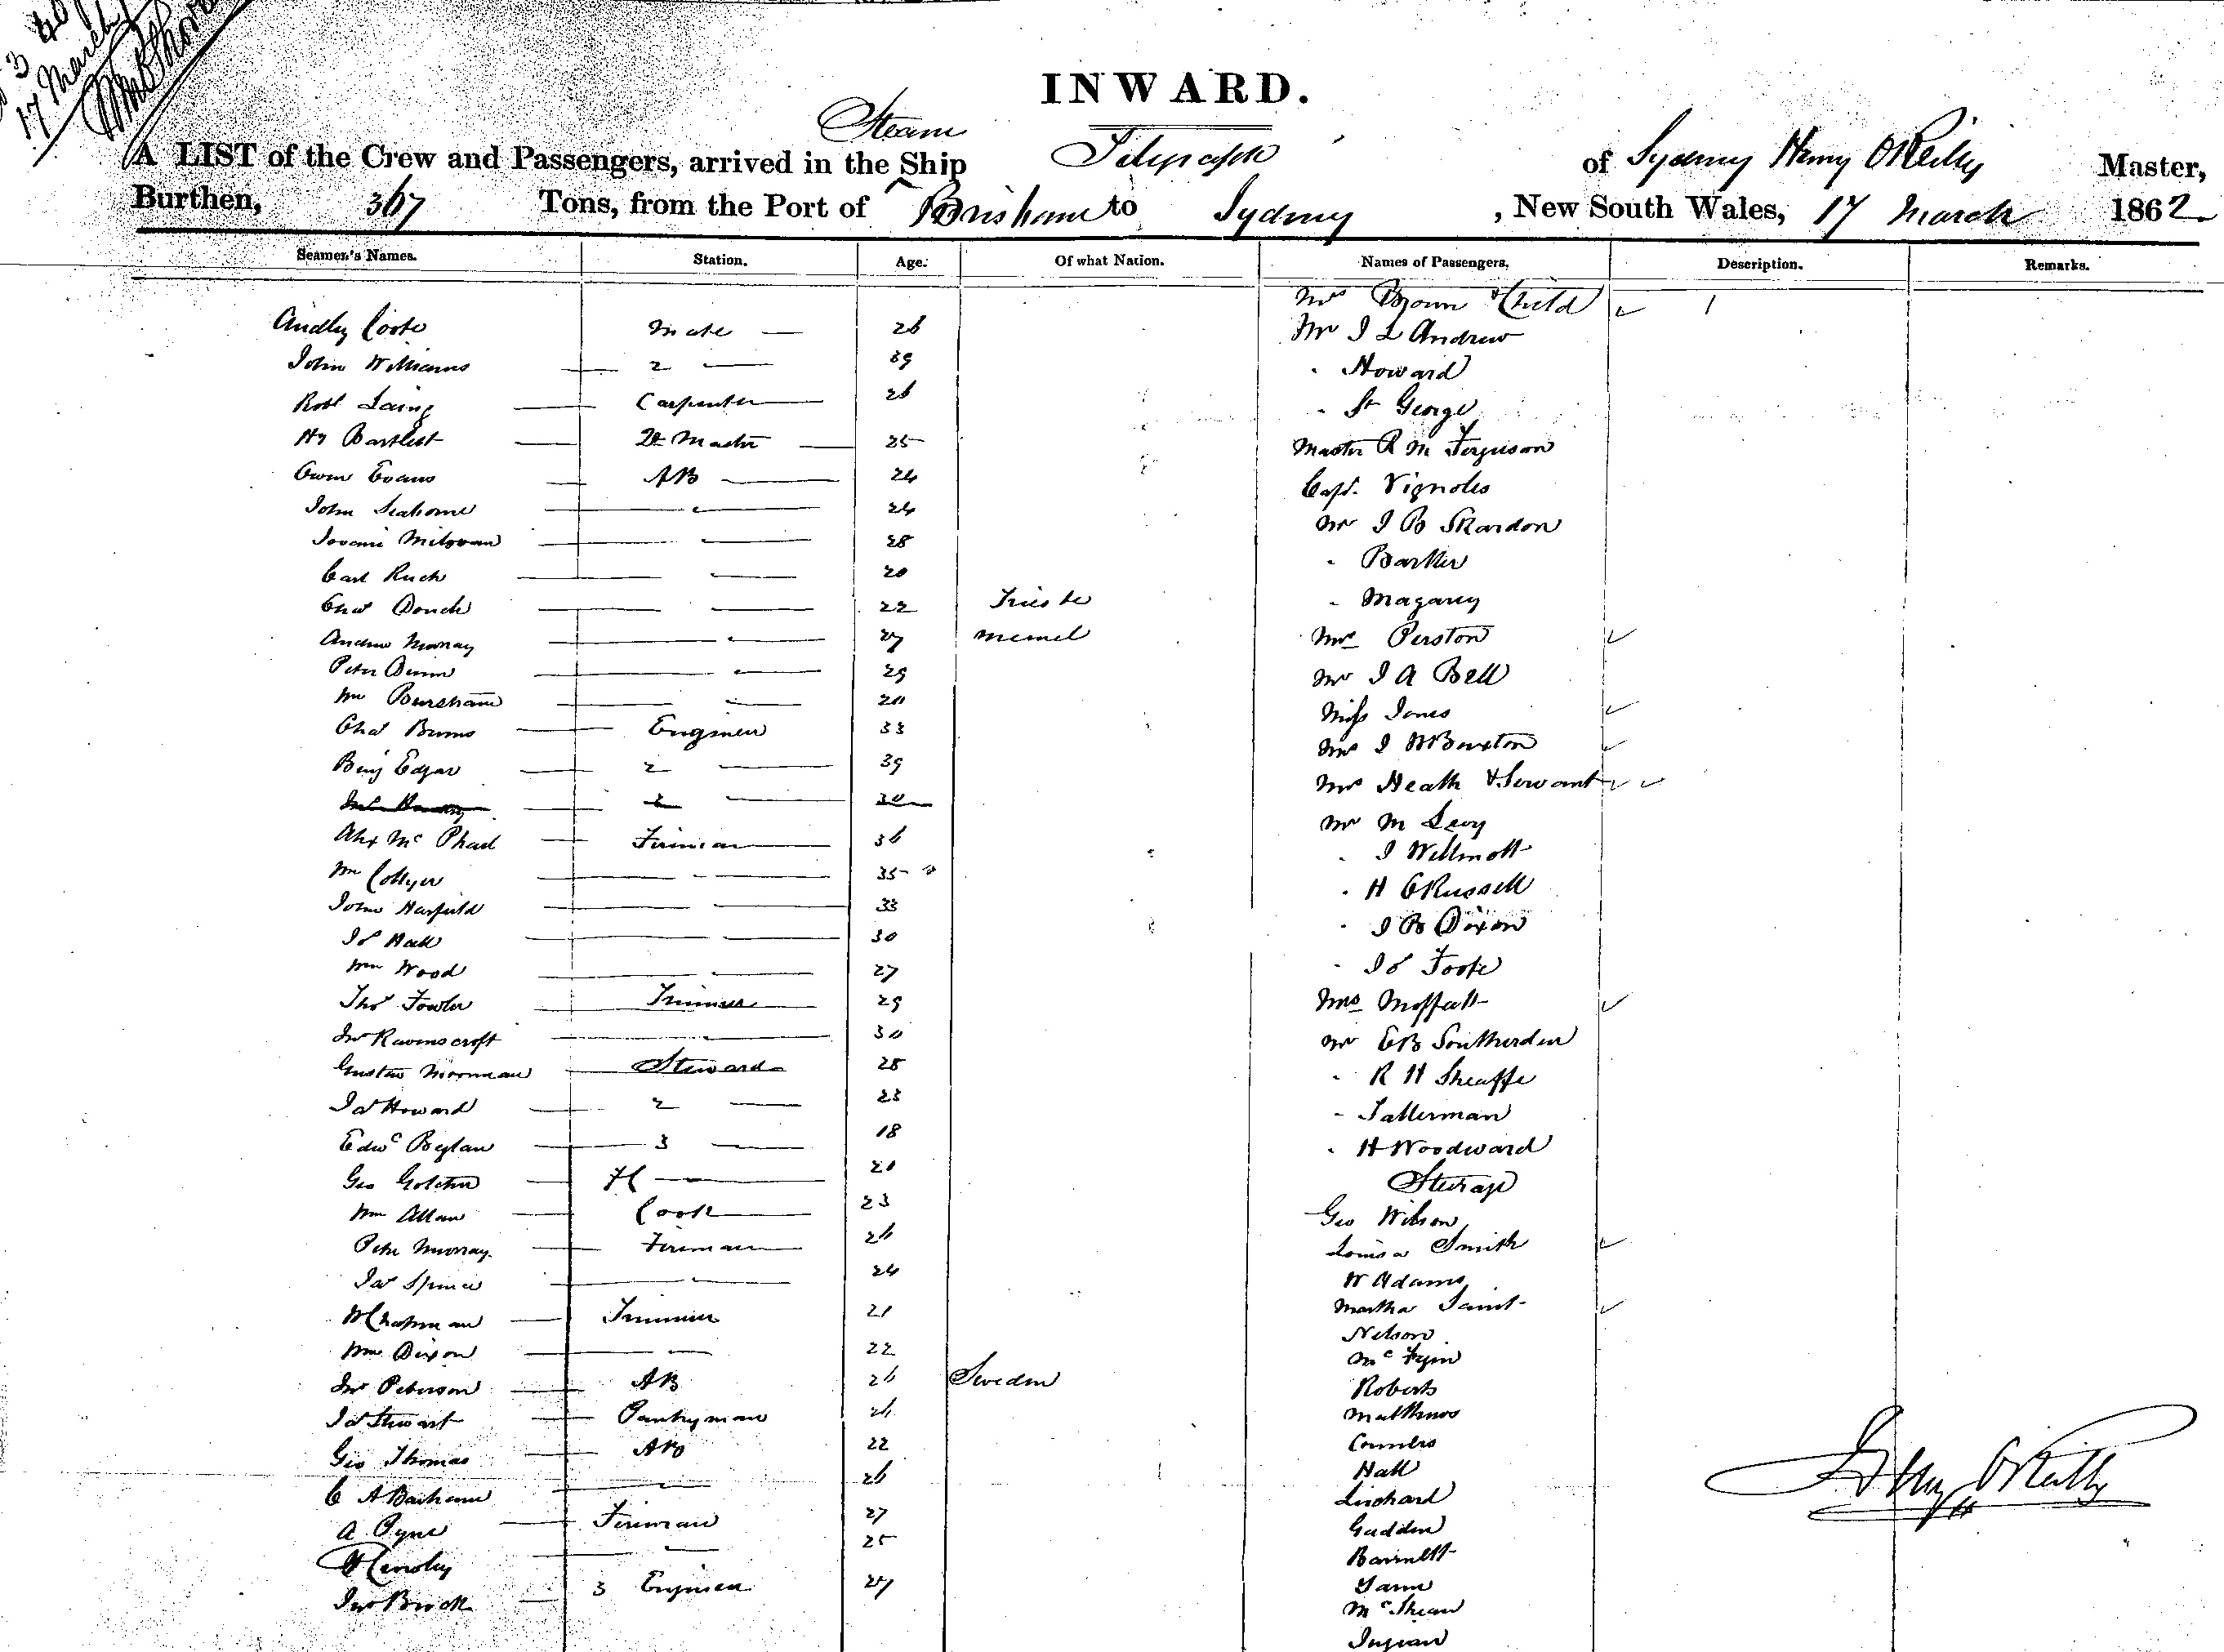 17 March
INWARD.
Steam
A LIST of the Crew and Passengers, arrived in the Ship Telegraph of Sydney Henry O'Reilly Master,
Burthen, 367 Tons, from the Port of Brisbane to Sydney, New South Wales, 17 March 1862
Seamen's Names. Station. Age. Of what Nation. Names of Passengers. Description. Remarks.
Mrs Brown & Child 1
Audley Coote Mate 26 Mr J L Andrew
John Williams 2 39 Howard
Robt Laing Carpenter 26 St George
Hy Bartlett Qr Master 25 Master R M Ferguson
Owen Evans AB 24 Capt. Vignoles
John 24 Mr J B Skardon
28 Barker
Carl Ruch 20 Magarey
Chas 22 Trieste Mrs Perston
Andrew Murray 27 Memel Mr J A Bell
Peter Dunn 29 Miss Jones
Wm 20 Mrs J W Buxton
Chas Burns Engineer 33 Mrs Heath & Servant
Benj Edgar 2 39 Mr M Levy
30 J Willmott
Alex McPhail Fireman 36 H C Russell
Wm Collyer 35 J B Dixon
John Harfield 33 Js Foote
Js Hall 30 Mrs Moffatt
Wm Wood 27 Mr E B Southerden
Thos Fowler Trimmer 29 R H Sheaffe
Jno Ravenscroft 30 Tallerman
Gustav Steward 28 H Woodward
Jas Howard 2 23 Steerage
Edwd 3 18 Geo Wilson
Geo 20 Louisa Smith
Wm Allan Cook 23 W Adams
Peter Murray Fireman 26 Martha Saint
Jas Spence 24 Nelson
W Chapman Trimmer 21
Wm Dixon 22 Roberts
Jno Peterson AB 26 Sweden Matthews
Js Stewart Pantryman Conners
Geo Thomas AB 22 Hall
C A 26
A Pyne Fireman 27
25 Barnett
Jno Brick 3 Engineer 27
S Hy O'Reilly